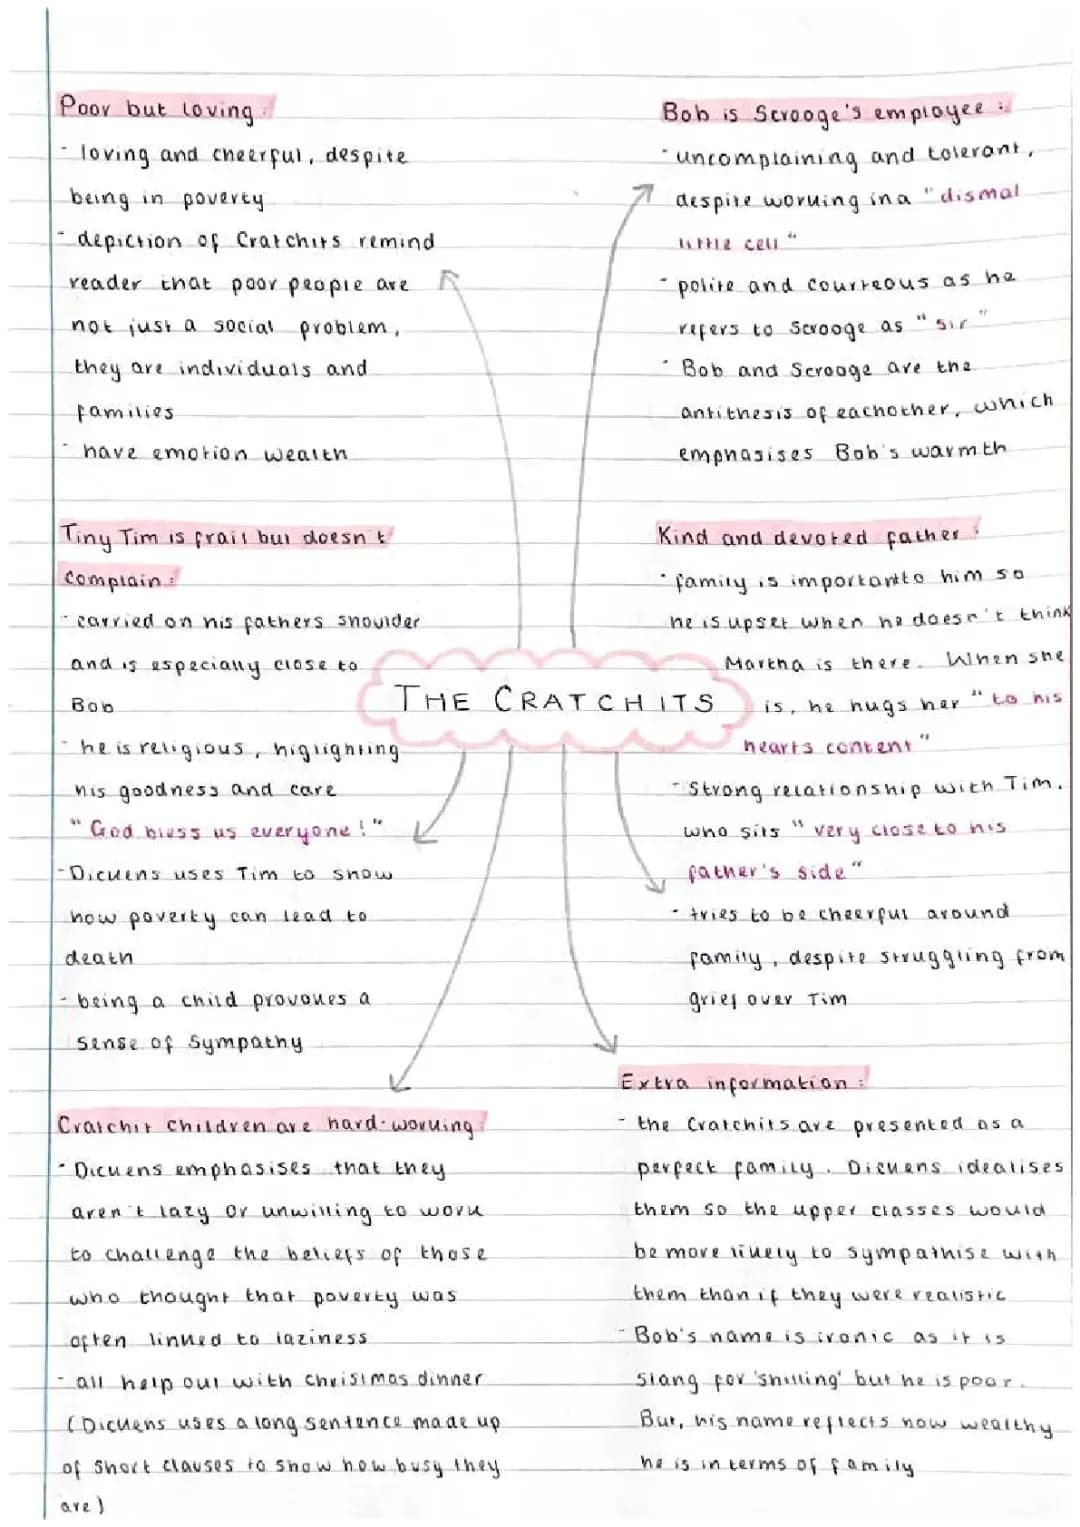 Poor but loving:
- loving and cheerful, despite
being in poverty
- depiction of Cratchits remind
reader that poor people are
not just a social problem,
they are individuals and
families
- have emotion wealth
Bob is Scrooge's employee:
- uncomplaining and tolerant,
despite working in a "dismal
little cell"
- polite and courteous as he
refers to Scrooge as "sir"
- Bob and Scrooge are the
antithesis of eachother, which
emphasises Bob's warmth
Tiny Tim is frail but doesn't
complain:
- carried on his fathers shoulder
and is especially close to
Bob
- he is religious, higlighting
his goodness and care
"God bless us everyone!"
- Dickens uses Tim to show
how poverty can lead to
death
- being a child provokes a
sense of sympathy
THE CRATCHITS
Kind and devoted father:
- family is important to him so
he is upset when he doesn't think
Martha is there. When she
is, he hugs her "to his
hearts content"
- Strong relationship with Tim,
who sits "very close to his
father's side"
- tries to be cheerful around
family, despite struggling from
grief over Tim
Cratchit children are hard-working:
- Dickens emphasises that they
aren't lazy or unwilling to work
to challenge the beliefs of those
who thought that poverty was
often linked to laziness
- all help out with christmas dinner
(Dickens uses a long sentence made up
of short clauses to show how busy they
are)
Extra information:
- the Cratchits are presented as a
perfect family. Dickens idealises
them so the upper classes would
be more likely to sympathise with
them than if they were realistic
- Bob's name is ironic as it is
slang for 'shilling' but he is poor.
But, his name reflects how wealthy
he is in terms of family